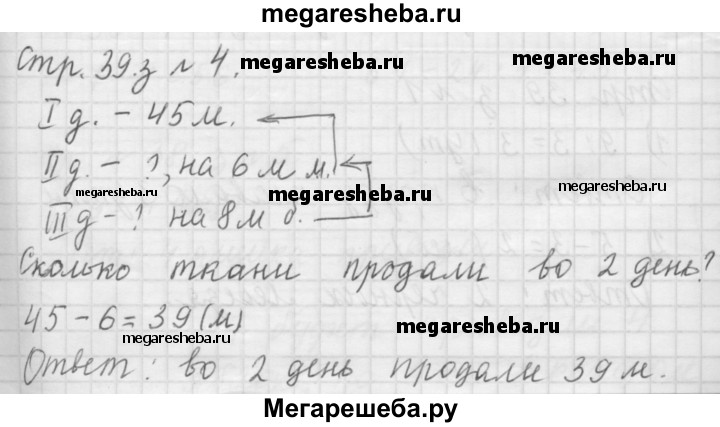 megaresheba.ru
Стр. 39. з № 4.
megaresheba.ru
megaresheba.ru
I д. - 45 м.
II д. - ?, на 6 м м.
megaresheba.ru
megaresheba.ru
III д - ? на 8 м б.
Сколько ткани продали во 2 день?
45 - 6 = 39 (м)
megaresheba.ru
megaresheba.ru
Ответ: во 2 день продали 39 м.
Мегарешеба.ру